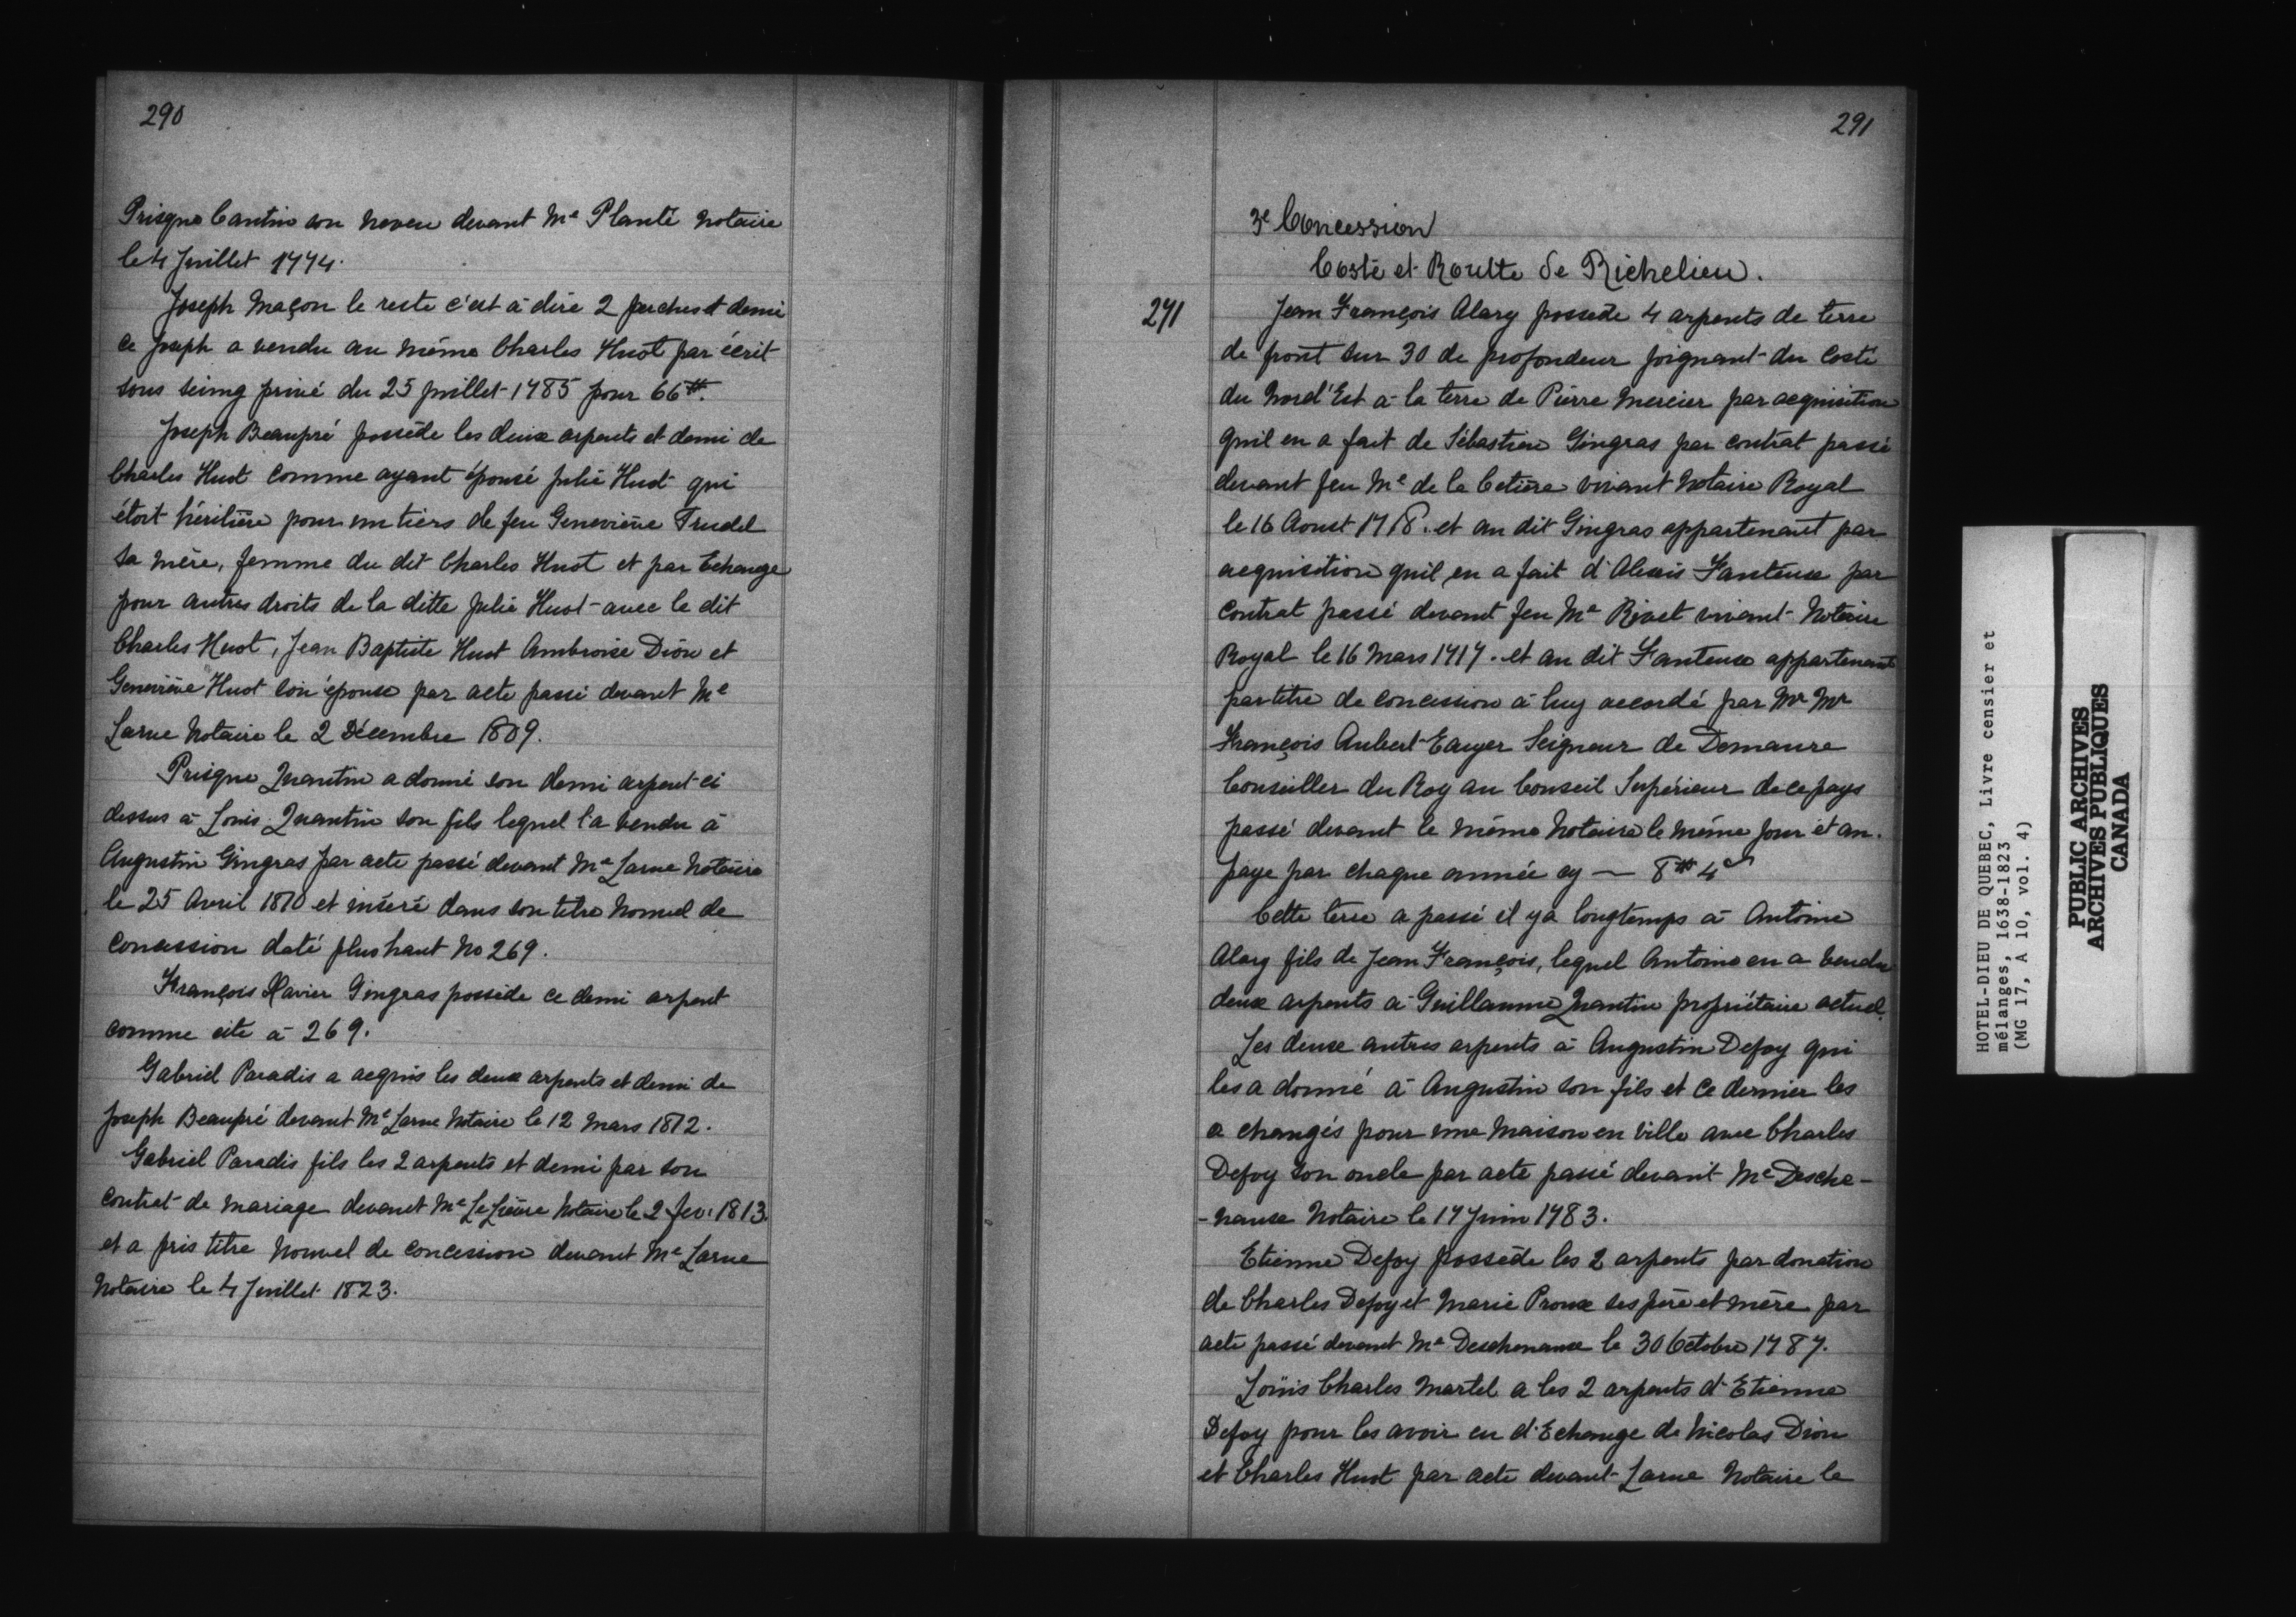 290
Prisque Cantin son neveu devant Me Planté Notaire
le 4 Juillet 1774.
Joseph Maçon le reste c'est à dire 2 perches et demi
Ce Joseph a vendu au même Charles Huot par écrit
sous seing privé du 25 juillet 1785 pour 66#.
Joseph Beaupré possède les deux arpents et demi de
Charles Huot comme ayant épousé Julie Huot qui
étoit héritière pour un tiers de feu Geneviève Trudel
sa mère, femme du dit Charles Huot et par Echange
pour autres droits de la ditte Julie Huot avec le dit
Charles Huot, Jean Baptiste Huot Ambroise Dion et
Geneviève Huot son épouse par acte passé devant Me
Larue Notaire le 2 Décembre 1809.
Prisque Quantin a donné son demi arpent ci
dessus à Louis Quantin son fils lequel l'a vendu à
Augustin Gingras par acte passé devant Me Larue Notaire
le 25 Avril 1810 et inséré dans son titre Nouvel de
Concession daté plus haut No 269.
François Xavier Gingras possède ce demi arpent
comme cité à 269.
Gabriel Paradis a acquis les deux arpents et demi de
Joseph Beaupré devant Me Larue Notaire le 12 Mars 1812.
Gabriel Paradis fils les 2 arpents et demi par son
contrat de mariage devant Me LeLièvre Notaire le 2 fev. 1813.
et a pris titre Nouvel de Concession devant Me Larue
Notaire le 4 Juillet 1823.
291
3e Concession
Costé et Routte de Richelieu.
271
Jean François Alary possède 4 arpents de terre
de front sur 30 de profondeur joignant du Costé
du Nord'Est à la terre de Pierre Mercier par acquisition
quil en a fait de Sébastien Gingras par contrat passé
devant feu Me de la Cetière vivant Notaire Royal
le 16 Aoust 1718. et au dit Gingras appartenant par
acquisition quil en a fait d'Alexis Fanteux par
Contrat passé devant feu Me Rivet vivant Notaire
Royal le 16 Mars 1717. et au dit Fanteux appartenant
par titre de concession à luy accordé par Mr Mr
François Aubert Ecuyer Seigneur de Demaure
Conseiller du Roy au Conseil Supérieur de ce pays
passé devant le même Notaire le même jour et an.
paye par chaque année cy — 8# 4s
Cette terre a passé il y a longtemps à Antoine
Alary fils de Jean François, lequel Antoine en a vendu
deux arpents à Guillaume Quantin propriétaire actuel.
Les deux autres arpents à Augustin Defoy qui
les a donné à Augustin son fils et ce dernier les
a changés pour une Maison en Ville avec Charles
Defoy son oncle par acte passé devant Me Desche-
-naux Notaire le 17 Juin 1783.
Etienne Defoy possède les 2 arpents par donation
de Charles Defoy et Marie Proux ses père et mère par
acte passé devant Me Deschenaux le 30 Octobre 1787.
Loüis Charles Martel a les 2 arpents d'Etienne
Defoy pour les avoir eu d'Echange de Nicolas Dion
et Charles Huot par acte devant Larue Notaire le
HOTEL-DIEU DE QUEBEC, Livre censier et
mélanges, 1638-1823
(MG 17, A 10, vol. 4)
PUBLIC ARCHIVES
ARCHIVES PUBLIQUES
CANADA